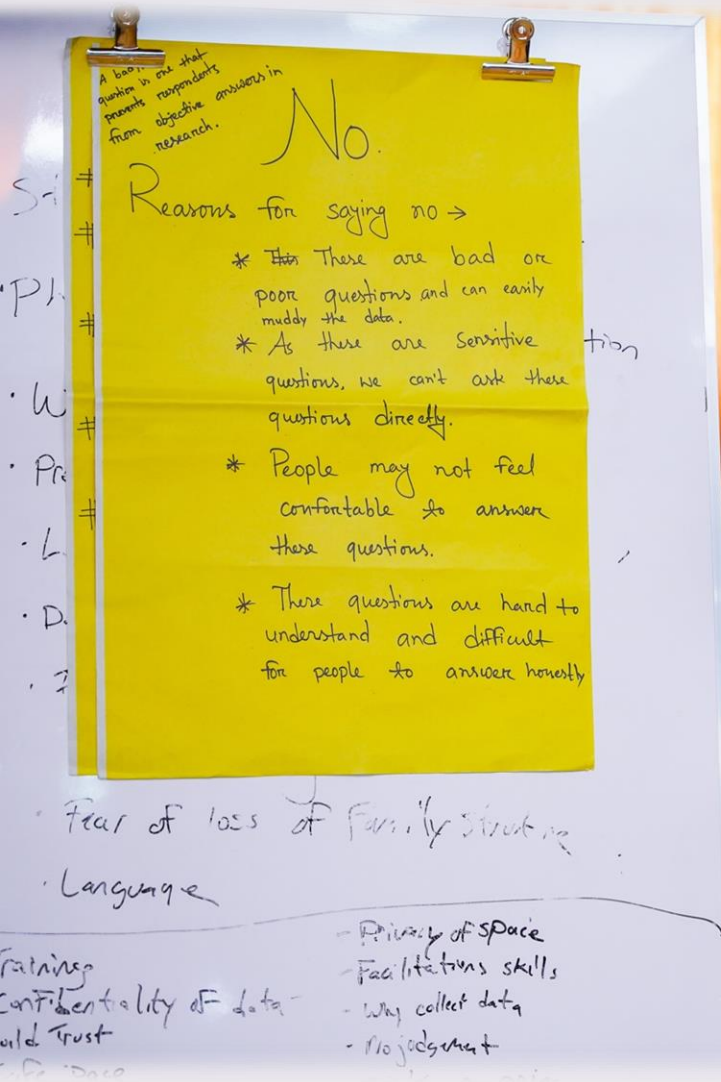 A bad
question is one that
prevents respondents
from objective answers in
research.
No.
Reasons for saying no →
* This These are bad or
poor questions and can easily
muddy the data.
* As these are sensitive
questions, we can't ask these
questions directly.
* People may not feel
confortable to answer
these questions.
* These questions are hard to
understand and difficult
for people to answer honestly
#
#
#
#
#
tion
· Fear of loss of Family
· Language
Training
Confidentiality of data
Trust
- Privacy of space
- Facilitations skills
- Why collect data
- No judgement